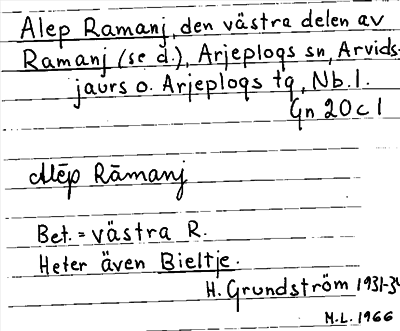 Alep Ramanj, den västra delen av
Ramanj (se d.), Arjeplogs sn, Arvids-
jaurs o. Arjeplogs tg, Nb.l.
Gn 20 c 1
Alēp Rāmanj
Bet. = västra R.
Heter även Bieltje.
H. Grundström 1931-34
M.L. 1966